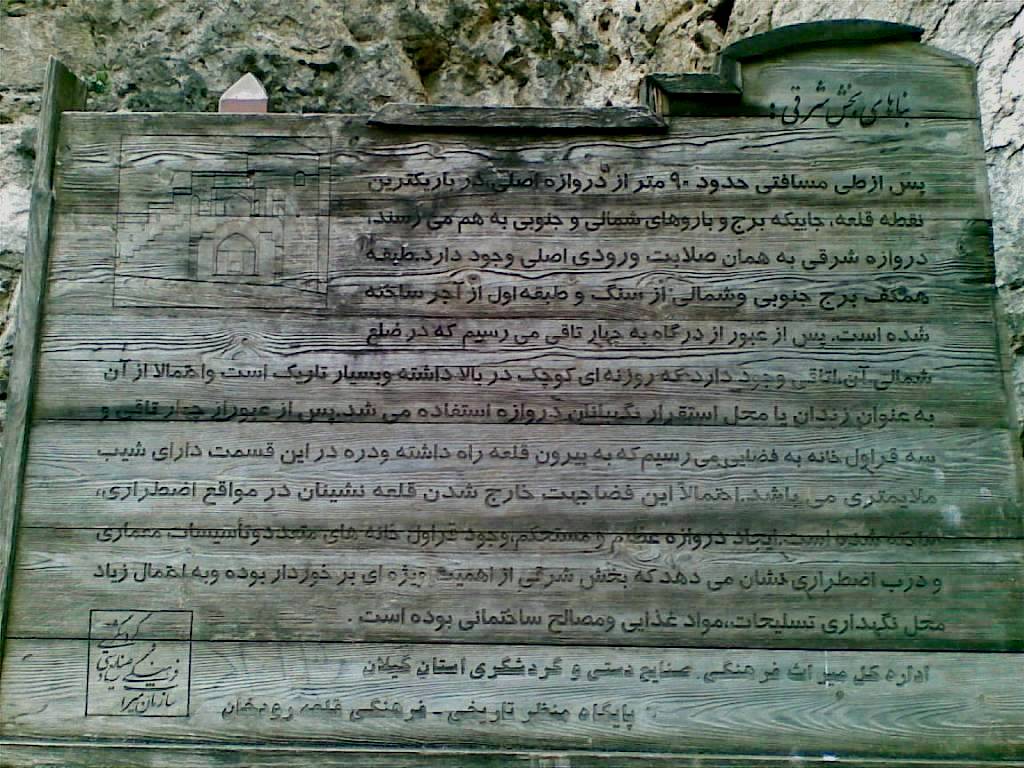 بناهای بخش شرقی :
پس از طی مسافتی حدود ۹۰ متر از دروازه اصلی، در باریکترین
نقطه قلعه، جاییکه برج و باروهای شمالی و جنوبی به هم می رسند،
دروازه شرقی به همان صلابت ورودی اصلی وجود دارد. طبقه
همکف برج جنوبی وشمالی از سنگ و طبقه اول از آجر ساخته
شده است. پس از عبور از درگاه به چهار تاقی می رسیم که در ضلع
شمالی آن، اتاقی وجود دارد که روزنه ای کوچک در بالا داشته وبسیار تاریک است واحتمالا از آن
به عنوان زندان یا محل استقرار نگهبانان دروازه استفاده می شد. پس از عبوراز چهار تاقی و
سه قراول خانه به فضایی می رسیم که به بیرون قلعه راه داشته ودره در این قسمت دارای شیب
ملایمتری می باشد. احتمالاً این فضاجهت خارج شدن قلعه نشینان در مواقع اضطراری،
ساخته شده است. ایجاد دروازه عظیم و مستحکم، وجود قراول خانه های متعددوتأسیسات معماری
و درب اضطراری نشان می دهد که بخش شرقی از اهمیت ویژه ای بر خوردار بوده وبه احتمال زیاد
محل نگهداری تسلیحات، مواد غذایی ومصالح ساختمانی بوده است .
اداره کل میراث فرهنگی، صنایع دستی و گردشگری استان گیلان
پایگاه منظر تاریخی - فرهنگی قلعه رودخان
سازمان میراث
فرهنگی
صنایع دستی
گردشگری